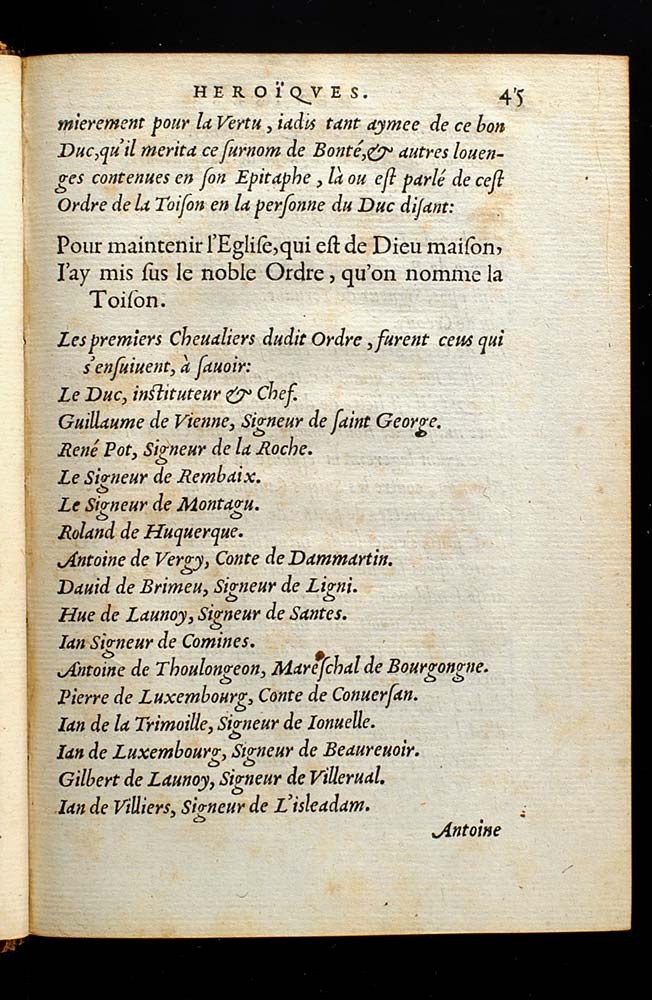 HEROÏQVES. 45
mierement pour la Vertu, iadis tant aymee de ce bon
Duc, qu'il merita ce ſurnom de Bonté, & autres louen-
ges contenues en ſon Epitaphe, là ou eſt parlé de ceſt
Ordre de la Toiſon en la perſonne du Duc diſant:
Pour maintenir l'Egliſe, qui eſt de Dieu maiſon,
I'ay mis ſus le noble Ordre, qu'on nomme la
Toiſon.
Les premiers Cheualiers dudit Ordre, furent ceus qui
s'enſuiuent, à ſauoir:
Le Duc, inſtituteur & Chef.
Guillaume de Vienne, Signeur de ſaint George.
René Pot, Signeur de la Roche.
Le Signeur de Rembaix.
Le Signeur de Montagu.
Roland de Huquerque.
Antoine de Vergy, Conte de Dammartin.
Dauid de Brimeu, Signeur de Ligni.
Hue de Launoy, Signeur de Santes.
Ian Signeur de Comines.
Antoine de Thoulongeon, Mareſchal de Bourgongne.
Pierre de Luxembourg, Conte de Conuerſan.
Ian de la Trimoille, Signeur de Ionuelle.
Ian de Luxembourg, Signeur de Beaureuoir.
Gilbert de Launoy, Signeur de Villerual.
Ian de Villiers, Signeur de L'isleadam.
Antoine